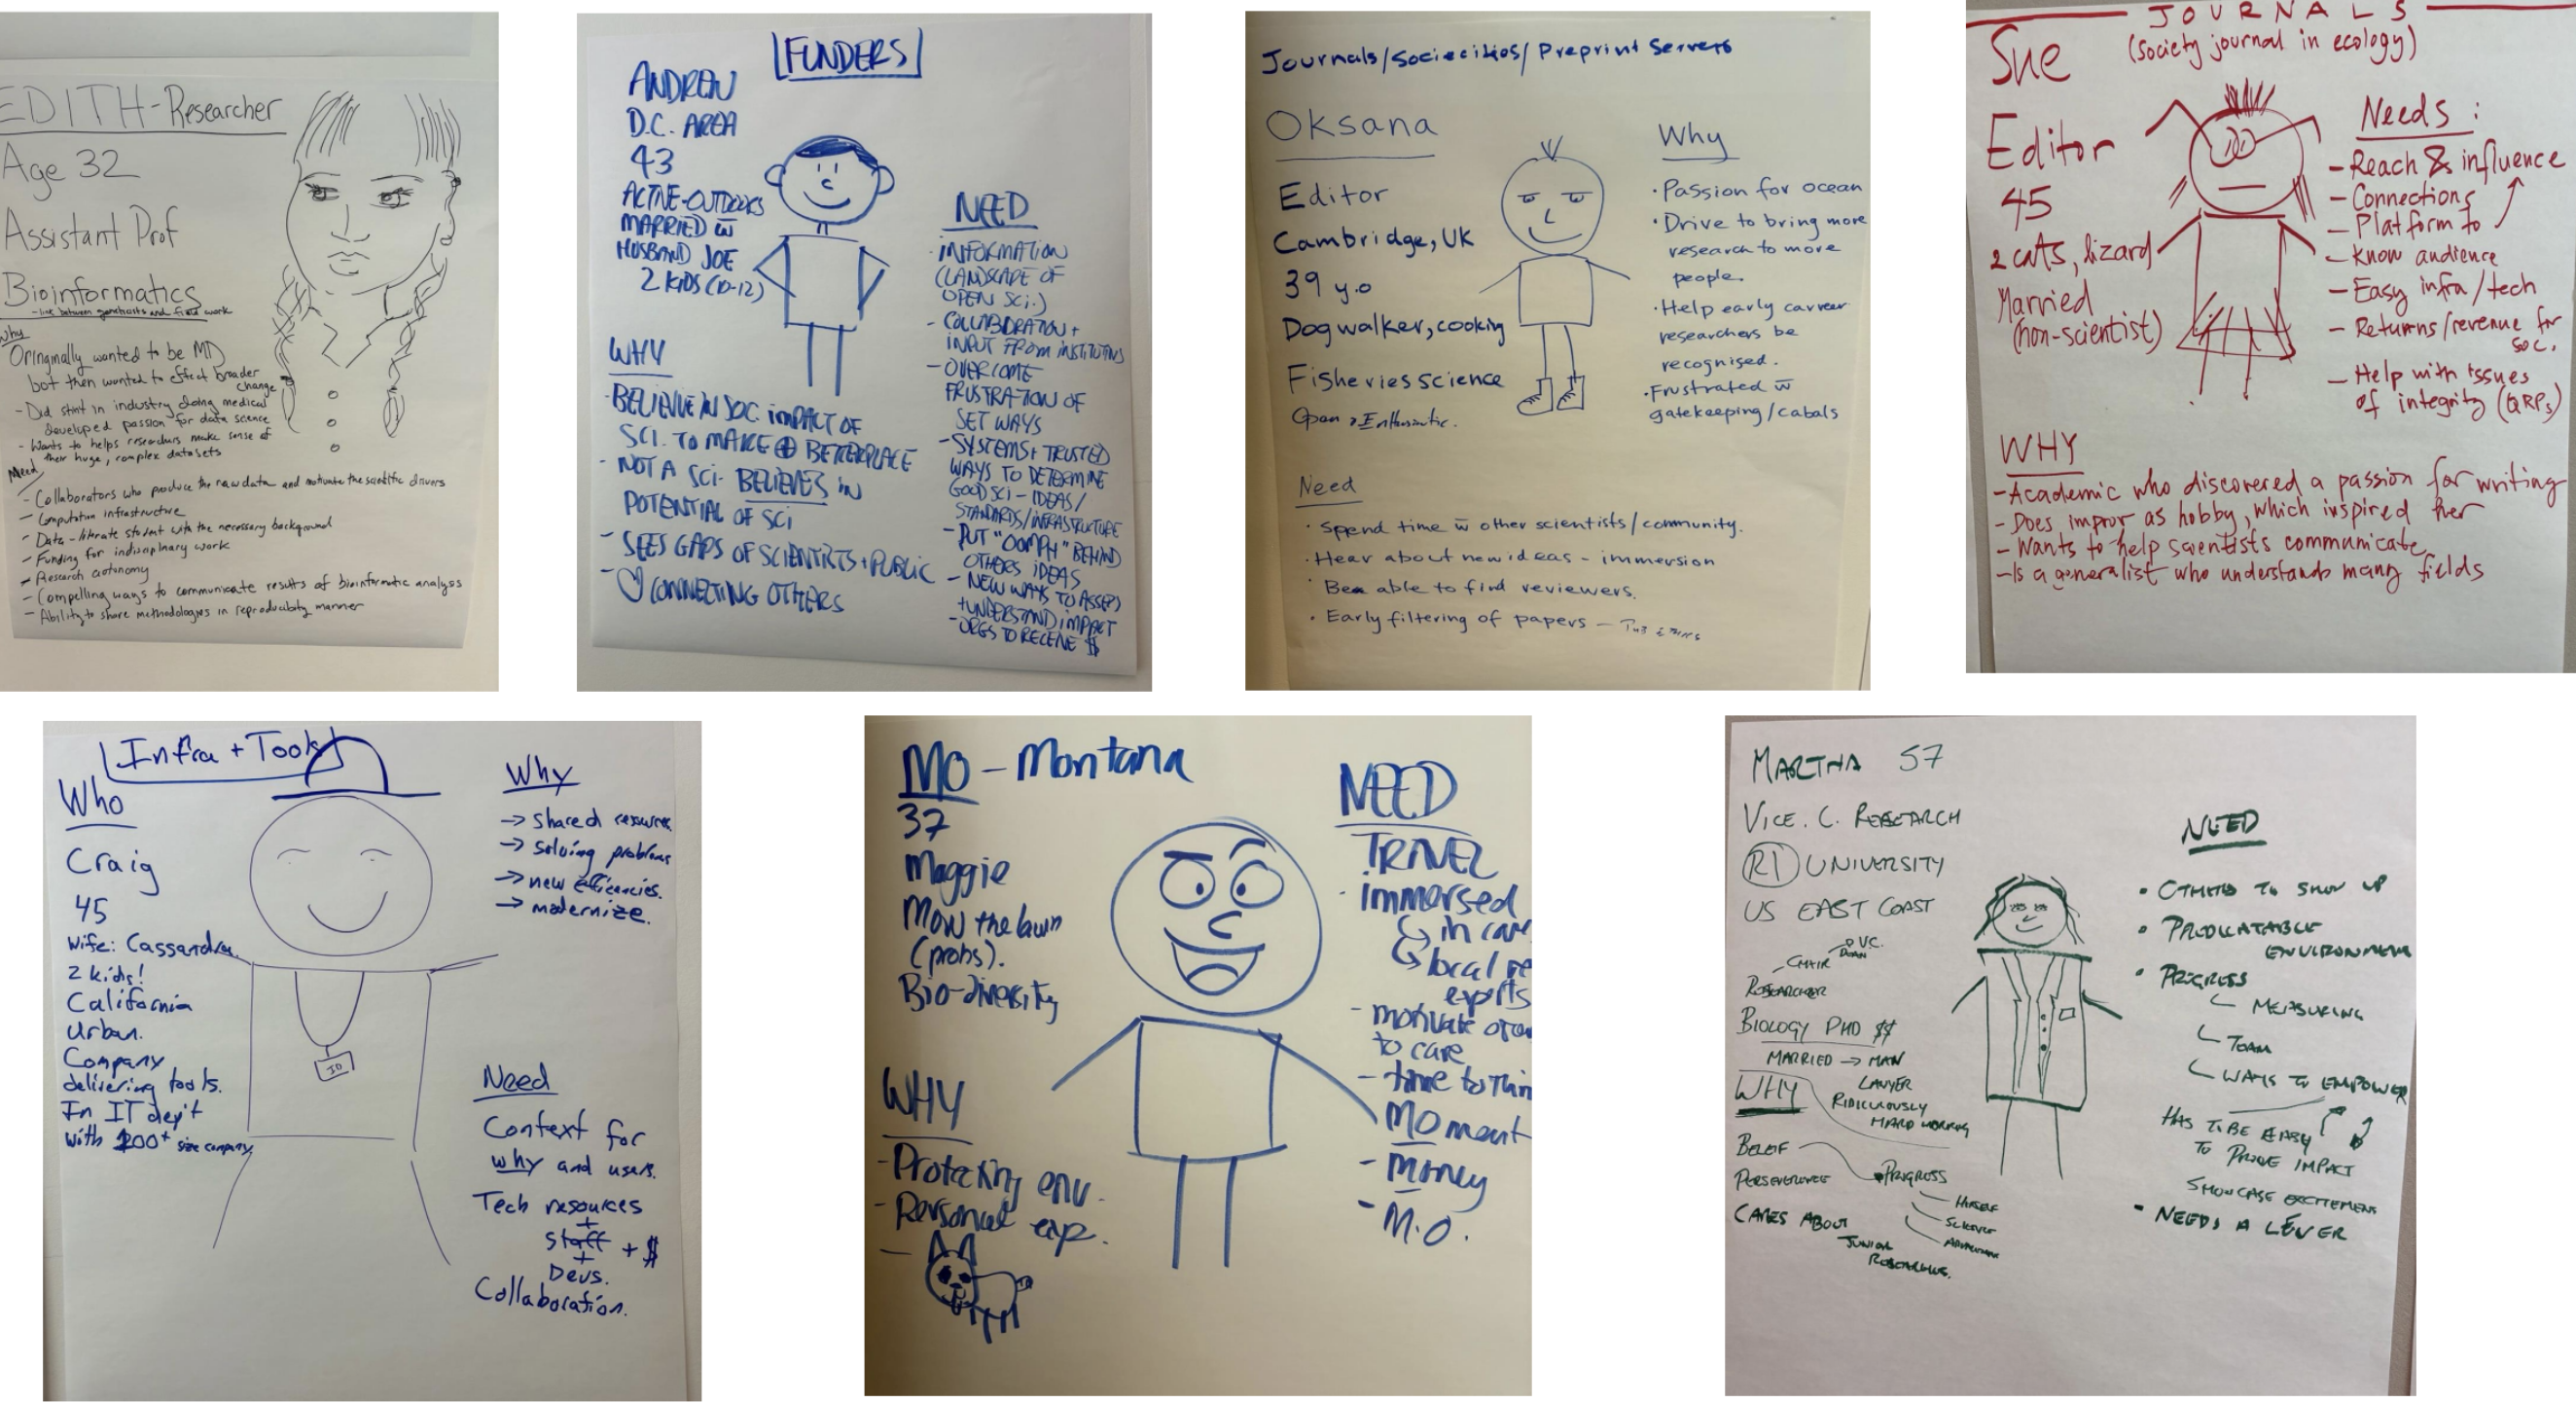 EDITH - Researcher
Age 32
Assistant Prof
Bioinformatics
- line between geneticists and field work
Why
Oringmally wanted to be MD
but then wanted to effect broader
change
- Did stint in industry doing medical
developed passion for data science
- Wants to helps researchers make sense of
their huge, complex datasets
Need
- Collaborators who produce the raw data and motivate the scientific drivers
- Computation infrastructure
- Data-literate student with the necessary background
- Funding for indisciplinary work
- Research autonomy
- Compelling ways to communicate results of bioinformatic analysis
- Ability to share methodologies in reproducibility manner
FUNDERS
ANDREW
D.C. AREA
43
ACTIVE-OUTDOORS
MARRIED w̄
HUSBAND JOE
2 KIDS (10-12)
WHY
- BELIEVE IN SOC. IMPACT OF
SCI. TO MAKE ⊕ BETTER PLACE
- NOT A SCI - BELIEVES IN
POTENTIAL OF SCI
- SEES GAPS OF SCIENTISTS + PUBLIC
- ♡ CONNECTING OTHERS
NEED
- INFORMATION
(LANDSCAPE OF
OPEN SCI.)
- COLLABORATION +
INPUT FROM INSTITUTINS
- OVERCOME
FRUSTRATION OF
SET WAYS
- SYSTEMS + TRUSTED
WAYS TO DETERMINE
GOOD SCI - IDEAS/
STANDARDS/INFRASTRUCTURE
- PUT "OOMPH" BEHIND
OTHERS IDEAS
- NEW WAYS TO ASSESS
+ UNDERSTAND IMPACT
- ORGS TO RECEIVE $
Journals/Sociecities/Preprint Servers
Oksana
Editor
Cambridge, UK
39 y.o
Dog walker, cooking
Fisheries science
Open & Enthusiastic.
Why
• Passion for ocean
• Drive to bring more
research to more
people.
• Help early carreer
researchers be
recognised.
• Frustrated w̄
gatekeeping/cabals
Need
• Spend time w̄ other scientists/community.
• Hear about new ideas - immersion
• Be able to find reviewers.
• Early filtering of papers -
JOURNALS
(society journal in ecology)
Sue
Editor
45
2 cats, lizard
Married
(non-scientist)
Needs:
- Reach & influence
- Connections
- Platform to
- Know audience
- Easy infra/tech
- Returns/revenue for
soc.
- Help with issues
of integrity (QRPs)
WHY
- Academic who discovered a passion for writing
- Does improv as hobby, which inspired her
- Wants to help scientists communicate
- Is a generalist who understands many fields
Infra + Tools
Who
Craig
45
Wife: Cassandra
2 kids!
California
Urban.
Company
delivering tools.
In IT dep't
with 200+ size company
Why
→ shared resources
→ solving problems
→ new efficencies.
→ modernize.
ID
Need
Context for
why and users.
Tech resources
+
staff + $
+
Devs.
Collaboration.
MO - Montana
37
Maggie
Mow the lawn
(probs).
Bio-diversity
WHY
- Protecting env.
- Personal exp.
-
NEED
TRAVEL
- immersed
in
local
experts
- motivate
to care
- time to
MOment
- Money
- M.O.
MARTHA 57
VICE. C. RESEARCH
R1 UNIVERSITY
US EAST COAST
CHAIR DEAN V.C.
RESEARCHER
BIOLOGY PHD $$
MARRIED → MAN
LAWYER
RIDICULOUSLY
HARD WORKING
WHY
BELIEF
PERSEVERENCE
PROGRESS
HERSELF
SCIENCE
CARES ABOUT
JUNIOR
RESEARCHERS.
NEED
• OTHERS TO SHOW UP
• PREDICATABLE
ENVIRONMENT
• PROGRESS
MEASURING
TEAM
WAYS TO EMPOWER
HAS TO BE EASY
TO PROVE IMPACT
SHOWCASE EXCITEMENT
• NEEDS A LEVER